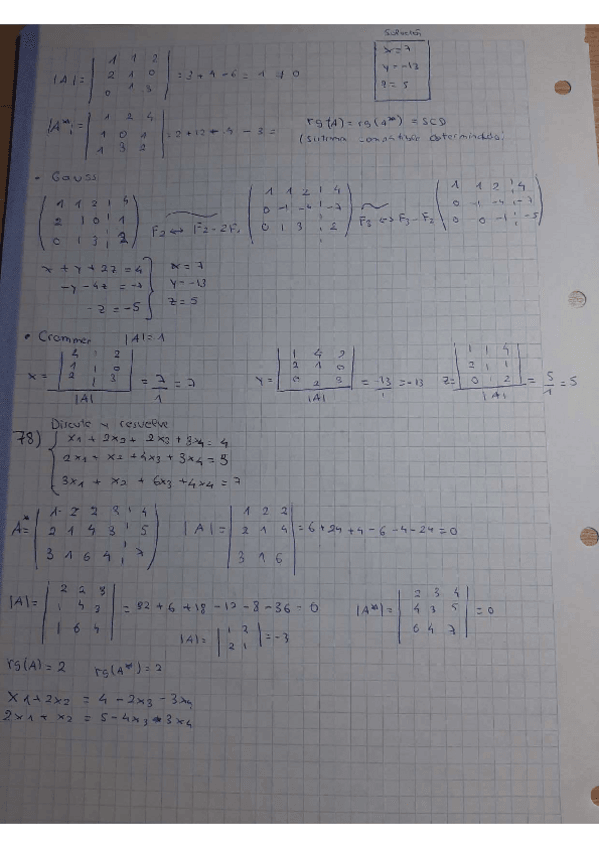 Solución
x = 7
y = -13
z = 5
|A| = | 1 1 2 | = 3 + 4 - 6 = 1 ≠ 0
2 1 0
0 1 3
|A*| = | 1 2 4 | = 2 + 12 - 4 - 3 =
1 0 1
1 3 2
rg(A) = rg(A*) = SCD
(sistema compatible determinado)
• Gauss
( 1 1 2 | 4 )
2 1 0 | 1
0 1 3 | 2
F2 ↔ F2 - 2F1
( 1 1 2 | 4 )
0 -1 -4 | -7
0 1 3 | 2
F3 ↔ F3 - F2
( 1 1 2 | 4 )
0 -1 -4 | -7
0 0 -1 | -5
x + y + 2z = 4
-y - 4z = -7
-z = -5
x = 7
y = -13
z = 5
• Crammer |A| = 1
x = | 4 1 2 |
1 1 0
2 1 3
|A|
= 7/1 = 7
y = | 1 4 2 |
2 1 0
0 2 3
|A|
= -13/1 = -13
z = | 1 1 4 |
2 1 1
0 1 2
|A|
= 5/1 = 5
Discute y resuelve
78) x1 + 2x2 + 2x3 + 3x4 = 4
2x1 + x2 + 4x3 + 3x4 = 5
3x1 + x2 + 6x3 + 4x4 = 7
A* = ( 1 2 2 3 | 4 )
2 1 4 3 | 5
3 1 6 4 | 7
|A| = | 1 2 2 | = 6 + 24 + 4 - 6 - 4 - 24 = 0
2 1 4
3 1 6
|A| = | 2 2 3 | = 32 + 6 + 18 - 12 - 8 - 36 = 0
1 4 3
1 6 4
|A| = | 1 2 | = -3
2 1
|A*| = | 2 3 4 | = 0
4 3 5
6 4 7
rg(A) = 2 rg(A*) = 2
x1 + 2x2 = 4 - 2x3 - 3x4
2x1 + x2 = 5 - 4x3 - 3x4